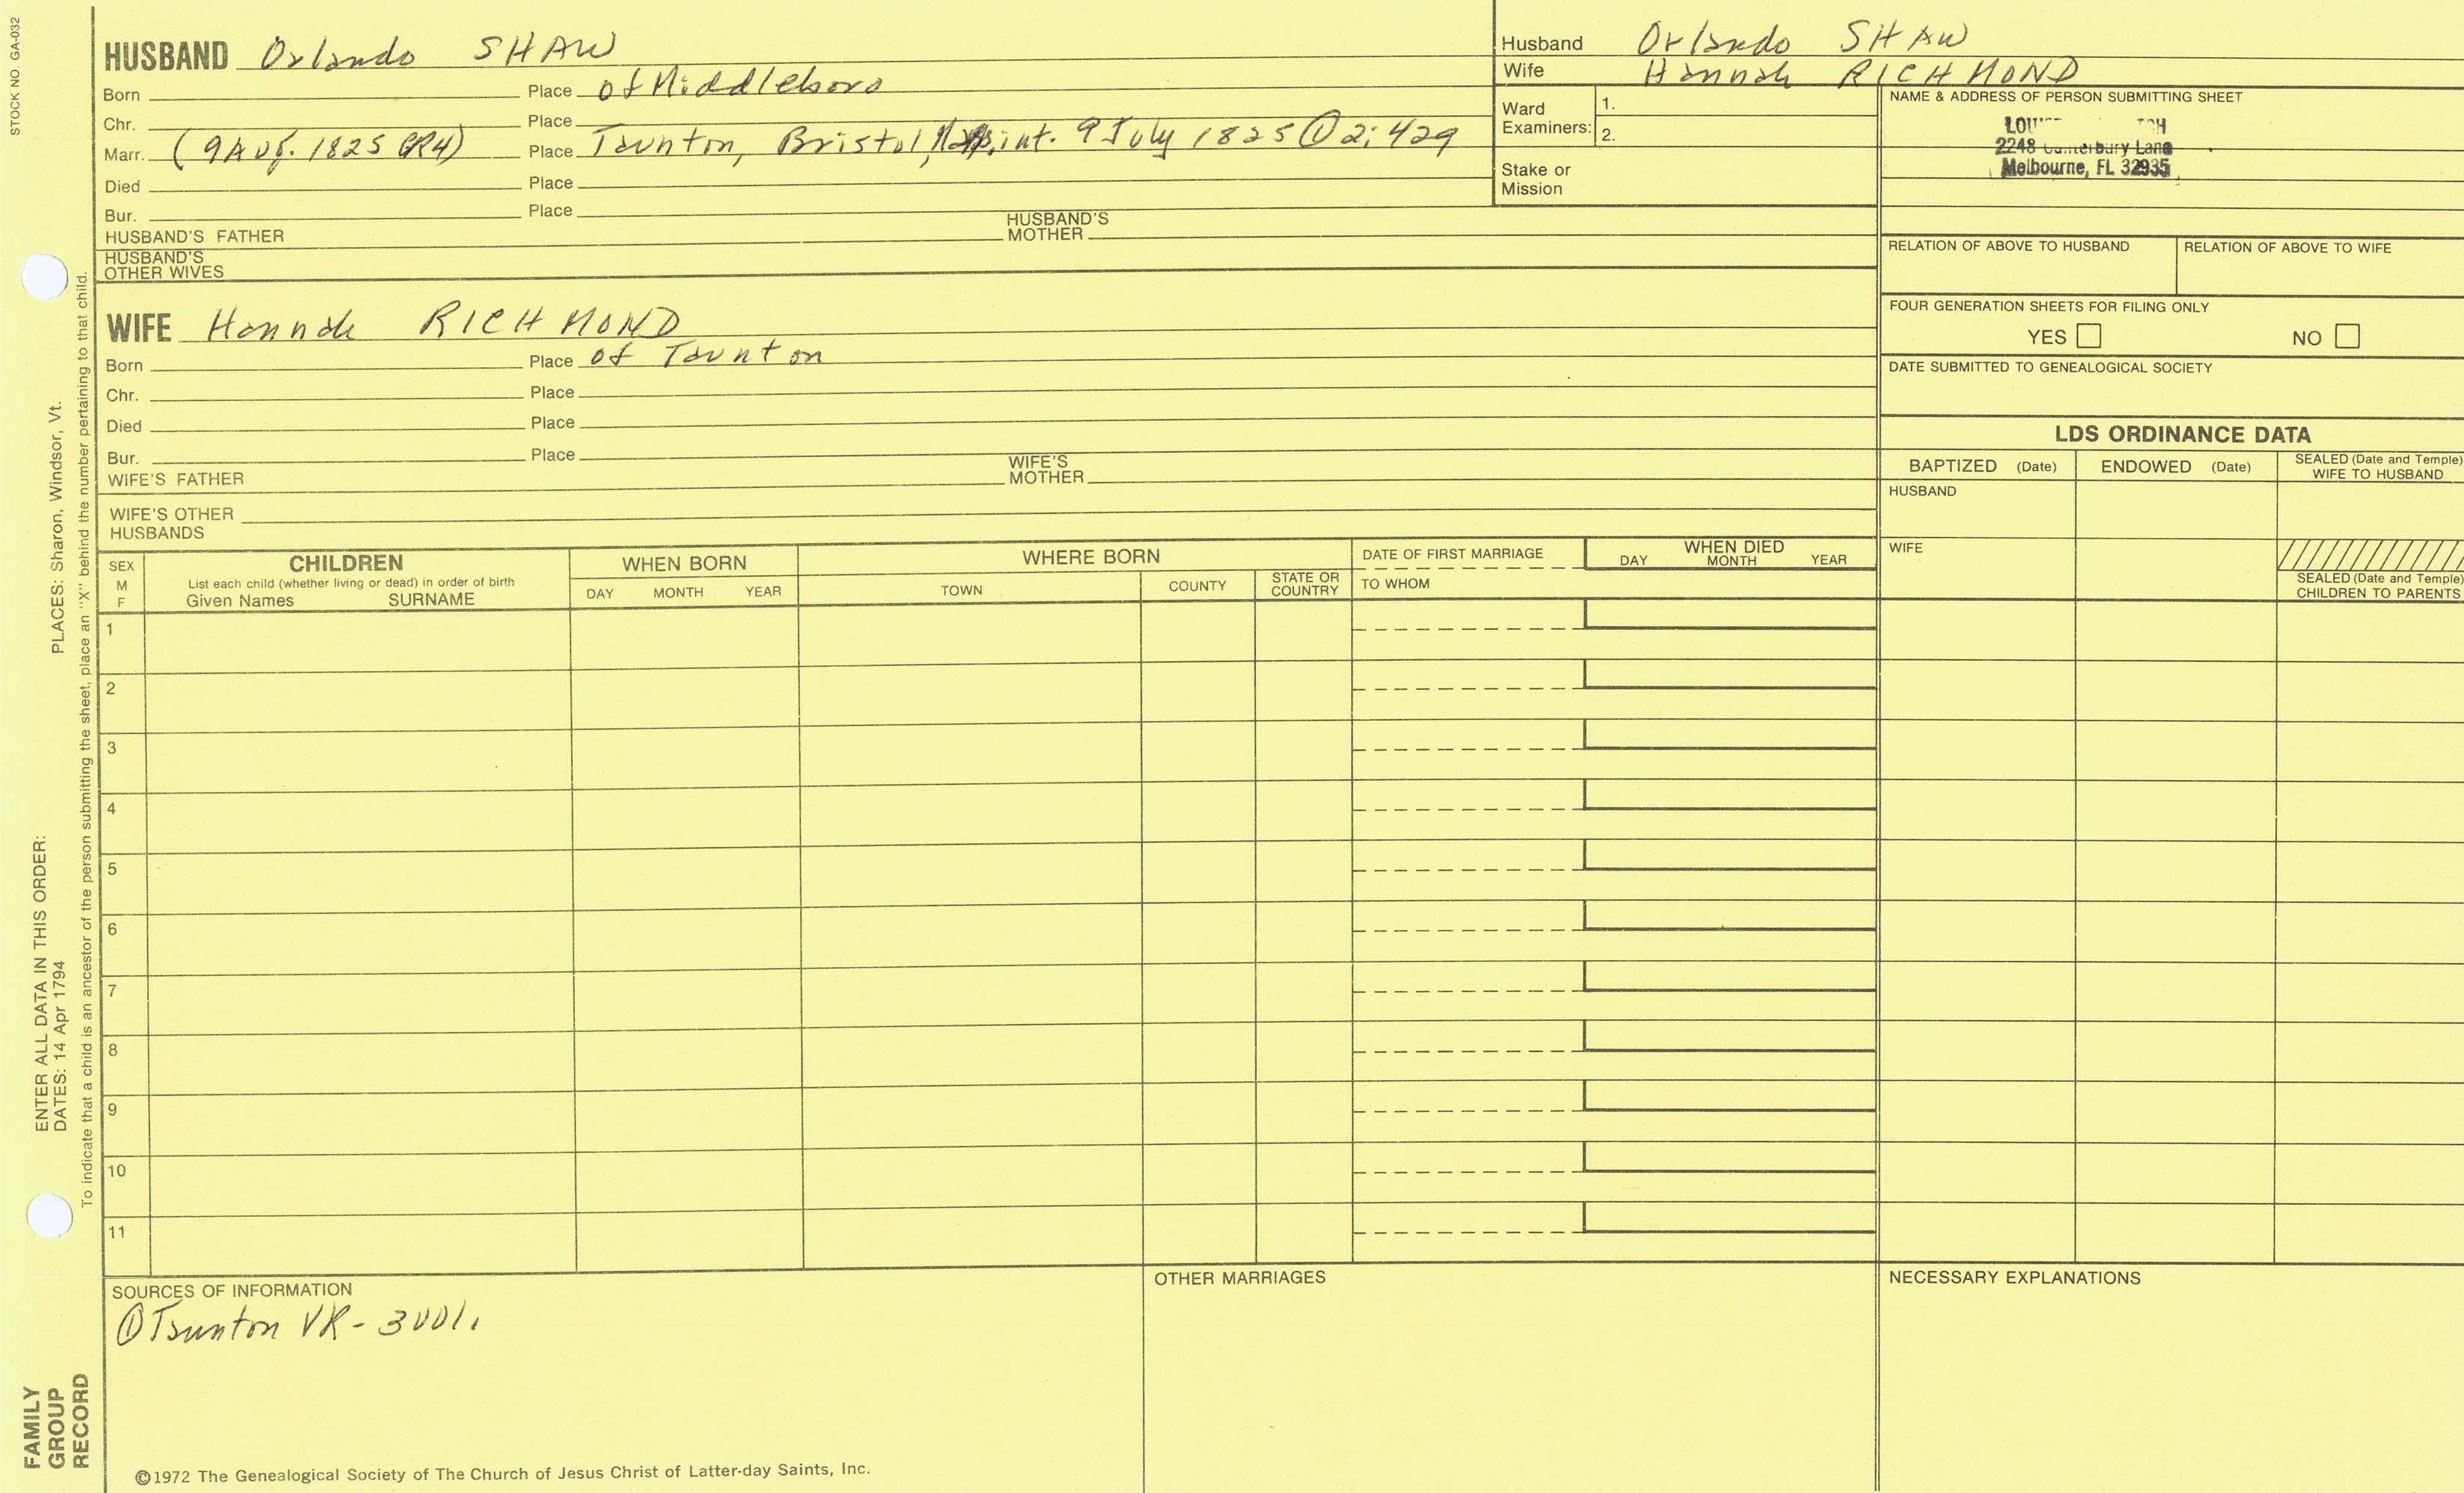 STOCK NO. GA-032
HUSBAND Orlando SHAW
Born Place of Middleboro
Chr. Place
Marr. (9 Aug. 1825 GR4) Place Taunton, Bristol, int. 9 July 1825 ① 2:429
Died Place
Bur. Place
HUSBAND'S FATHER HUSBAND'S MOTHER
HUSBAND'S OTHER WIVES
Husband Orlando SHAW
Wife Hannah RICHMOND
Ward Examiners: 1.
2.
Stake or Mission
NAME & ADDRESS OF PERSON SUBMITTING SHEET
2248 Canterbury Lane
Melbourne, FL 32935
RELATION OF ABOVE TO HUSBAND RELATION OF ABOVE TO WIFE
FOUR GENERATION SHEETS FOR FILING ONLY
YES NO
DATE SUBMITTED TO GENEALOGICAL SOCIETY
WIFE Hannah RICHMOND
Born Place of Taunton
Chr. Place
Died Place
Bur. Place
WIFE'S FATHER WIFE'S MOTHER
WIFE'S OTHER HUSBANDS
LDS ORDINANCE DATA
BAPTIZED (Date) ENDOWED (Date) SEALED (Date and Temple) WIFE TO HUSBAND
HUSBAND
WIFE
SEALED (Date and Temple) CHILDREN TO PARENTS
SEX M F
CHILDREN
List each child (whether living or dead) in order of birth
Given Names SURNAME
WHEN BORN
DAY MONTH YEAR
WHERE BORN
TOWN COUNTY STATE OR COUNTRY
DATE OF FIRST MARRIAGE
TO WHOM
WHEN DIED
DAY MONTH YEAR
1
2
3
4
5
6
7
8
9
10
11
SOURCES OF INFORMATION
① Taunton VR - 3 vol.
OTHER MARRIAGES
NECESSARY EXPLANATIONS
©1972 The Genealogical Society of The Church of Jesus Christ of Latter-day Saints, Inc.
FAMILY
GROUP
RECORD
ENTER ALL DATA IN THIS ORDER:
DATES: 14 Apr 1794 PLACES: Sharon, Windsor, Vt.
To indicate that a child is an ancestor of the person submitting the sheet, place an "X" behind the number pertaining to that child.